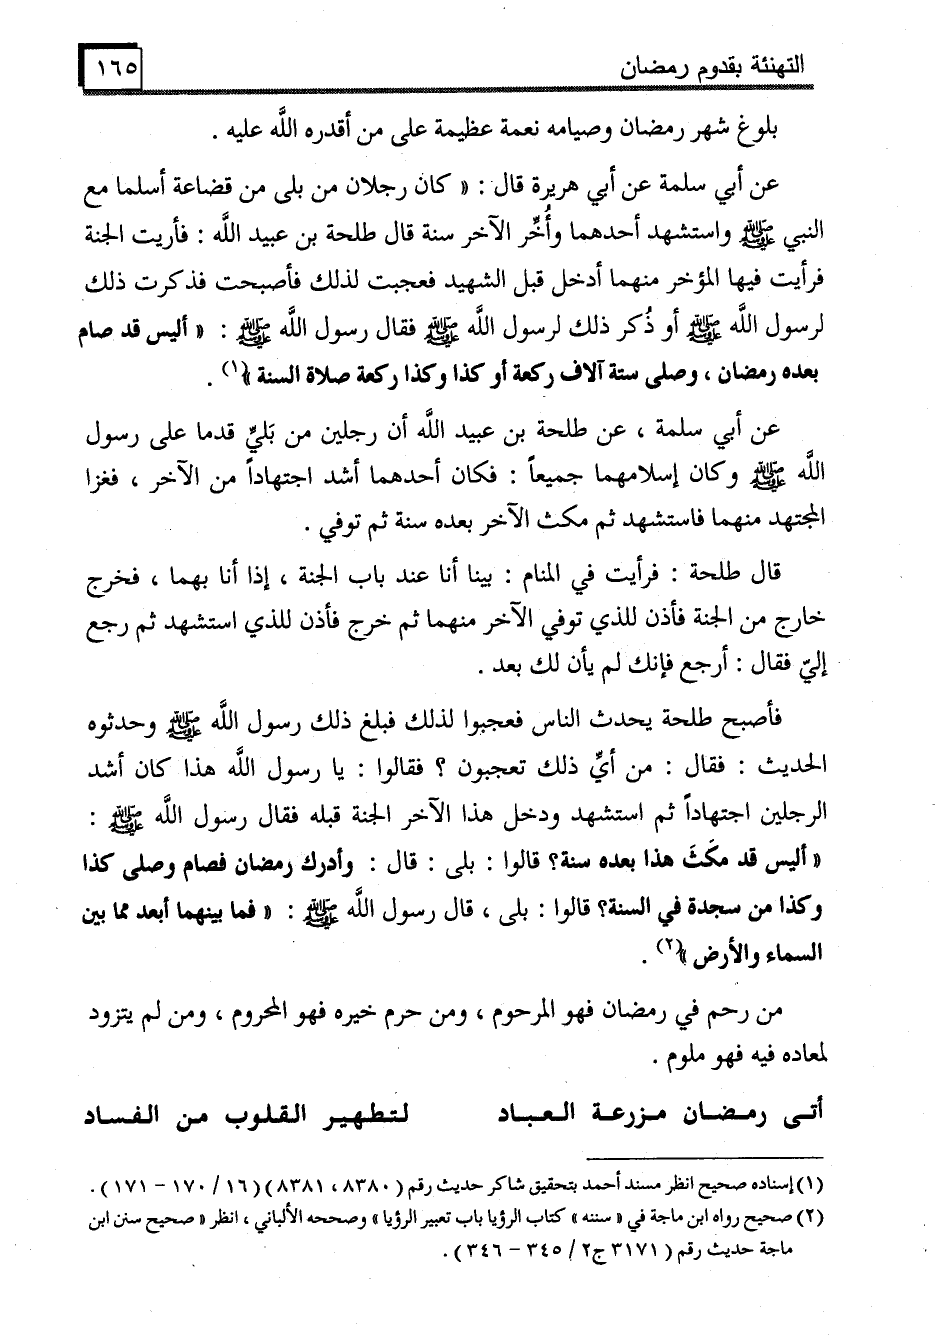 التهنئة بقدوم رمضان ١٦٥
بلوغ شهر رمضان وصيامه نعمة عظيمة على من أقدره اللَّه عليه .
عن أبي سلمة عن أبي هريرة قال : « كان رجلان من بلى من قضاعة أسلما مع
النبي ﷺ واستشهد أحدهما وأُخِّر الآخر سنة قال طلحة بن عبيد اللَّه : فأريت الجنة
فرأيت فيها المؤخر منهما أدخل قبل الشهيد فعجبت لذلك فأصبحت فذكرت ذلك
لرسول اللَّه ﷺ أو ذُكر ذلك لرسول اللَّه ﷺ فقال رسول اللَّه ﷺ : « أليس قد صام
بعده رمضان ، وصلى ستة آلاف ركعة أو كذا وكذا ركعة صلاة السنة »(١) .
عن أبي سلمة ، عن طلحة بن عبيد اللَّه أن رجلين من بَليِّ قدما على رسول
اللَّه ﷺ وكان إسلامهما جميعاً : فكان أحدهما أشد اجتهاداً من الآخر ، فغزا
المجتهد منهما فاستشهد ثم مكث الآخر بعده سنة ثم توفي .
قال طلحة : فرأيت في المنام : بينا أنا عند باب الجنة ، إذا أنا بهما ، فخرج
خارج من الجنة فأذن للذي توفي الآخر منهما ثم خرج فأذن للذي استشهد ثم رجع
إليّ فقال : أرجع فإنك لم يأن لك بعد .
فأصبح طلحة يحدث الناس فعجبوا لذلك فبلغ ذلك رسول اللَّه ﷺ وحدثوه
الحديث : فقال : من أيِّ ذلك تعجبون ؟ فقالوا : يا رسول اللَّه هذا كان أشد
الرجلين اجتهاداً ثم استشهد ودخل هذا الآخر الجنة قبله فقال رسول اللَّه ﷺ :
« أليس قد مكَثَ هذا بعده سنة؟ قالوا : بلى : قال : وأدرك رمضان فصام وصلى كذا
وكذا من سجدة في السنة؟ قالوا : بلى ، قال رسول اللَّه ﷺ : « فما بينهما أبعد مما بين
السماء والأرض »(٢) .
من رحم في رمضان فهو المرحوم ، ومن حرم خيره فهو المحروم ، ومن لم يتزود
لمعاده فيه فهو ملوم .
أتـى رمـضـان مـزرعـة الـعـبـاد لـتـطـهـيـر الـقـلـوب مـن الـفـسـاد
(١) إسناده صحيح انظر مسند أحمد بتحقيق شاكر حديث رقم ( ٨٣٨٠ ، ٨٣٨١ ) ( ١٦ / ١٧٠ - ١٧١ ) .
(٢) صحيح رواه ابن ماجة في « سننه » كتاب الرؤيا باب تعبير الرؤيا » وصححه الألباني ، انظر « صحيح سنن ابن
ماجة حديث رقم ( ٣١٧١ ج٢ / ٣٤٥ - ٣٤٦ ) .